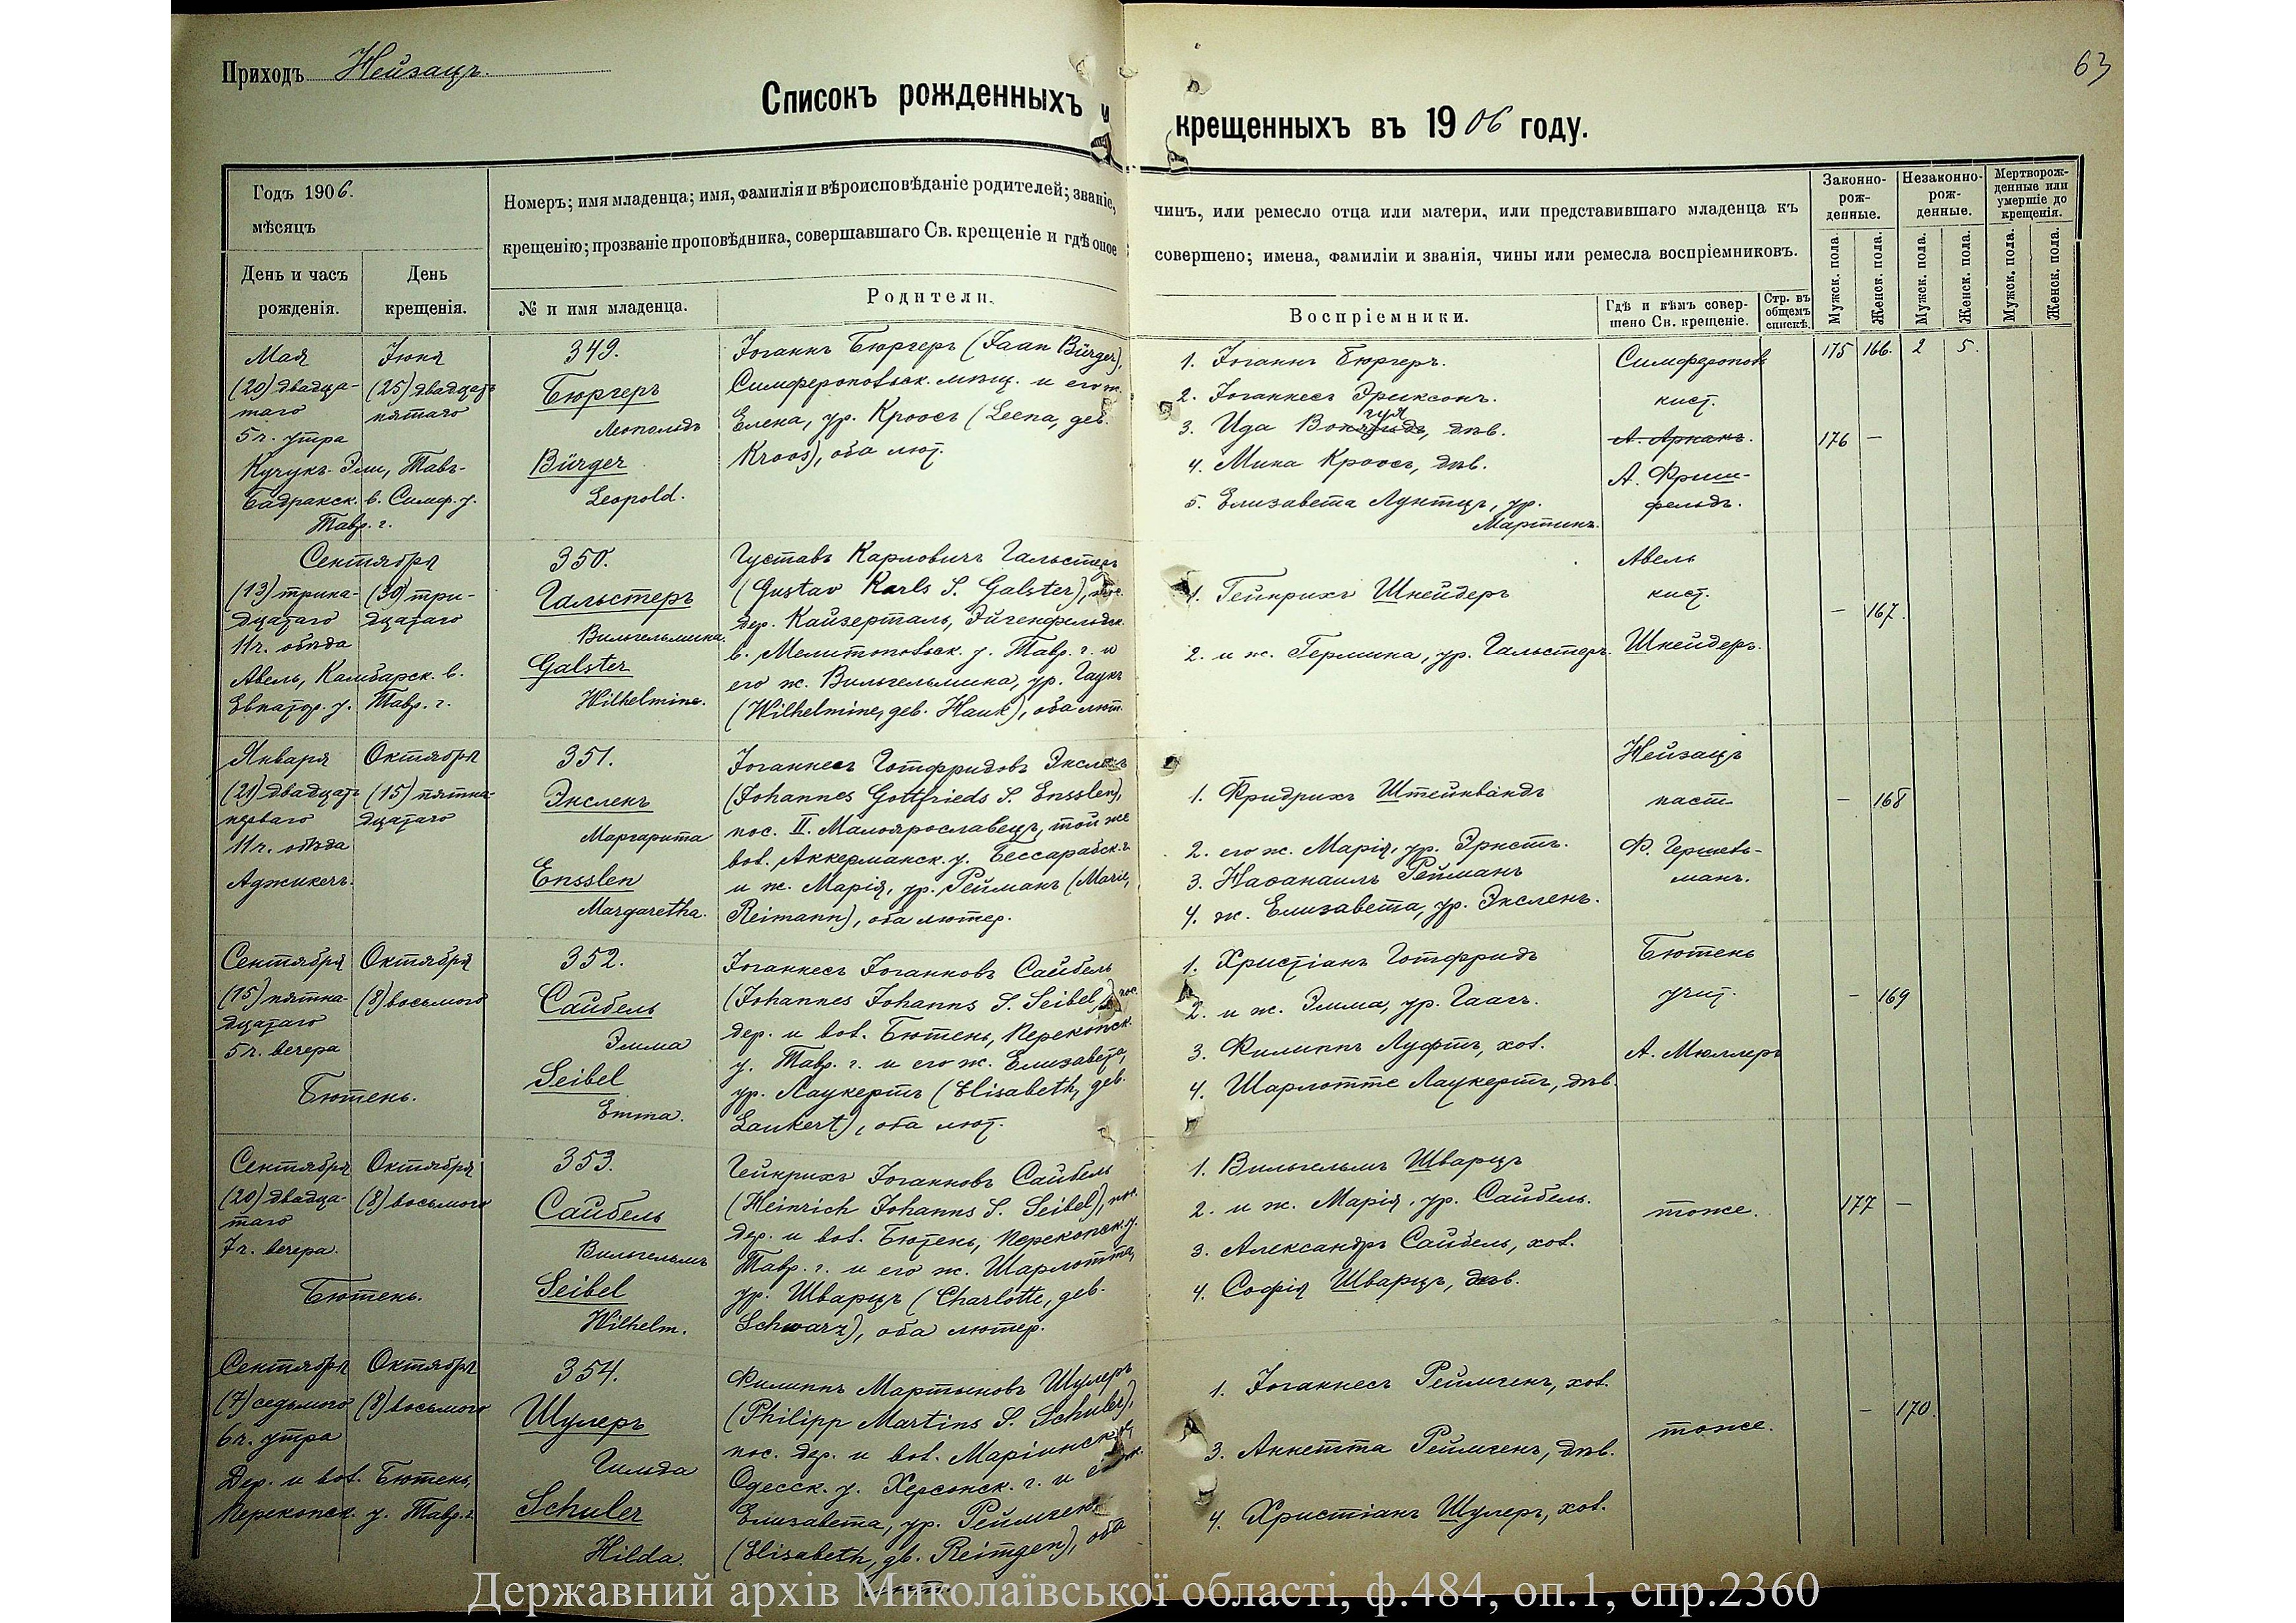 Приходъ Нейзацъ.
63
Списокъ рожденныхъ и крещенныхъ въ 1906 году.
Годъ 1906.
мѣсяцъ
День и часъ рожденія.
День крещенія.
Номеръ; имя младенца; имя, фамилія и вѣроисповѣданіе родителей; званіе, чинъ, или ремесло отца или матери, или представившаго младенца къ
крещенію; прозваніе проповѣдника, совершавшаго Св. крещеніе и гдѣ оное совершено; имена, фамиліи и званія, чины или ремесла воспріемниковъ.
№ и имя младенца.
Родители.
Воспріемники.
Гдѣ и кѣмъ совер-
шено Св. крещеніе.
Стр. въ
общемъ
спискѣ.
Законно-
рож-
денные.
Незаконно-
рож-
денные.
Мертворож-
денные или
умершіе до
крещенія.
Мужск. пола.
Женск. пола.
Мужск. пола.
Женск. пола.
Мужск. пола.
Женск. пола.
Мая
(20) двадца-
таго
5 ч. утра
Іюня
(25) двадцать
пятаго
Кучукъ-Эли, Тавъ-
Бадракск. в. Симф. у.
Тавр. г.
349.
Бюргеръ
Леопольдъ
Bürger
Leopold.
Іоганнъ Бюргеръ (Jaan Bürger),
Симферопольск. мѣщ. и его ж.
Елена, ур. Кроосъ (Leena, geb.
Kroos), оба лют.
1. Іоганнъ Бюргеръ.
2. Іоганнесъ Эриксонъ.
3. Ида дѣв.
4. Мина Кроосъ, дѣв.
5. Елизавета Лунтцъ, ур.
Мартинъ.
Симферополь
кист.
А. Фриш-
фельдъ.
175 166. 2 5.
176 —
Сентября
(13) трина-
дцатаго
11 ч. обѣда
(30) три-
дцатаго
Авель, Камбарск. в.
Евпатор. у. Тавр. г.
350.
Гальстеръ
Вильгельмина.
Galster
Wilhelmine.
Густавъ Карловичъ Гальстеръ
(Gustav Karls S. Galster), пос.
дер. Кайзерталь, Эйгенфельдск.
в. Мелитопольск. у. Тавр. г. и
его ж. Вильгельмина, ур. Гаукъ
(Wilhelmine, geb. Hauk), оба лют.
1. Гейнрихъ Шнейдеръ
2. и ж. Гермина, ур. Гальстеръ.
Авель
кист.
Шнейдеръ.
— 167.
Января
(21) двадцать
перваго
11 ч. обѣда
Аджикечь.
Октября
(15) пятна-
дцатаго
351.
Энсленъ
Маргарита
Ensslen
Margaretha.
Іоганнесъ Готфридовъ Энсленъ
(Johannes Gottfrieds S. Ensslen),
пос. II. Малоярославецъ, той же
вол. Аккерманск. у. Бессарабск. г.
и ж. Марія, ур. Рейманъ (Marie,
Reimann), оба лютер.
1. Фридрихъ Штейнвандъ
2. его ж. Марія, ур. Эрнстъ.
3. Наѳанаилъ Рейманъ
4. ж. Елизавета, ур. Энсленъ.
Нейзацъ
паст.
Ф. Гершель-
манъ.
— 168
Сентября
(15) пятна-
дцатаго
5 ч. вечера
Октября
(8) восьмого
Бютень.
352.
Сайбель
Эмма
Seibel
Emma.
Іоганнесъ Іоганновъ Сайбель
(Johannes Johanns S. Seibel), пос.
дер. и вол. Бютень, Перекопск.
у. Тавр. г. и его ж. Елизавета,
ур. Лаукертъ (Elisabeth, geb.
Laukert), оба лют.
1. Христіанъ Готфридъ
2. и ж. Эмма, ур. Гаагъ.
3. Филиппъ Луфтъ, хол.
4. Шарлотте Лаукертъ, дѣв.
Бютень
учит.
А. Мюллеръ
— 169
Сентября
(20) двадца-
таго
7 ч. вечера.
Октября
(8) восьмого
Бютень.
353.
Сайбель
Вильгельмъ
Seibel
Wilhelm.
Гейнрихъ Іоганновъ Сайбель
(Heinrich Johanns S. Seibel), пос.
дер. и вол. Бютень, Перекопск. у.
Тавр. г. и его ж. Шарлотта,
ур. Шварцъ (Charlotte, geb.
Schwarz), оба лютер.
1. Вильгельмъ Шварцъ
2. и ж. Марія, ур. Сайбель.
3. Александръ Сайбель, хол.
4. Софія Шварцъ, дѣв.
тоже.
177 —
Сентября
(7) седьмого
6 ч. утра
Октября
(8) восьмого
Дер. и вол. Бютень,
Перекопск. у. Тавр. г.
354.
Шулеръ
Гильда
Schuler
Hilda.
Филиппъ Мартыновъ Шулеръ
(Philipp Martins S. Schuler),
пос. дер. и вол. Маріинск.,
Одесск. у. Херсонск. г. и его ж.
Елизавета, ур. Реймгенъ
(Elisabeth, gb. Reimgen), оба
лют.
1. Іоганнесъ Реймгенъ, хол.
3. Аннетта Реймгенъ, дѣв.
4. Христіанъ Шулеръ, хол.
тоже.
— 170.
Державний архів Миколаївської області, ф.484, оп.1, спр.2360